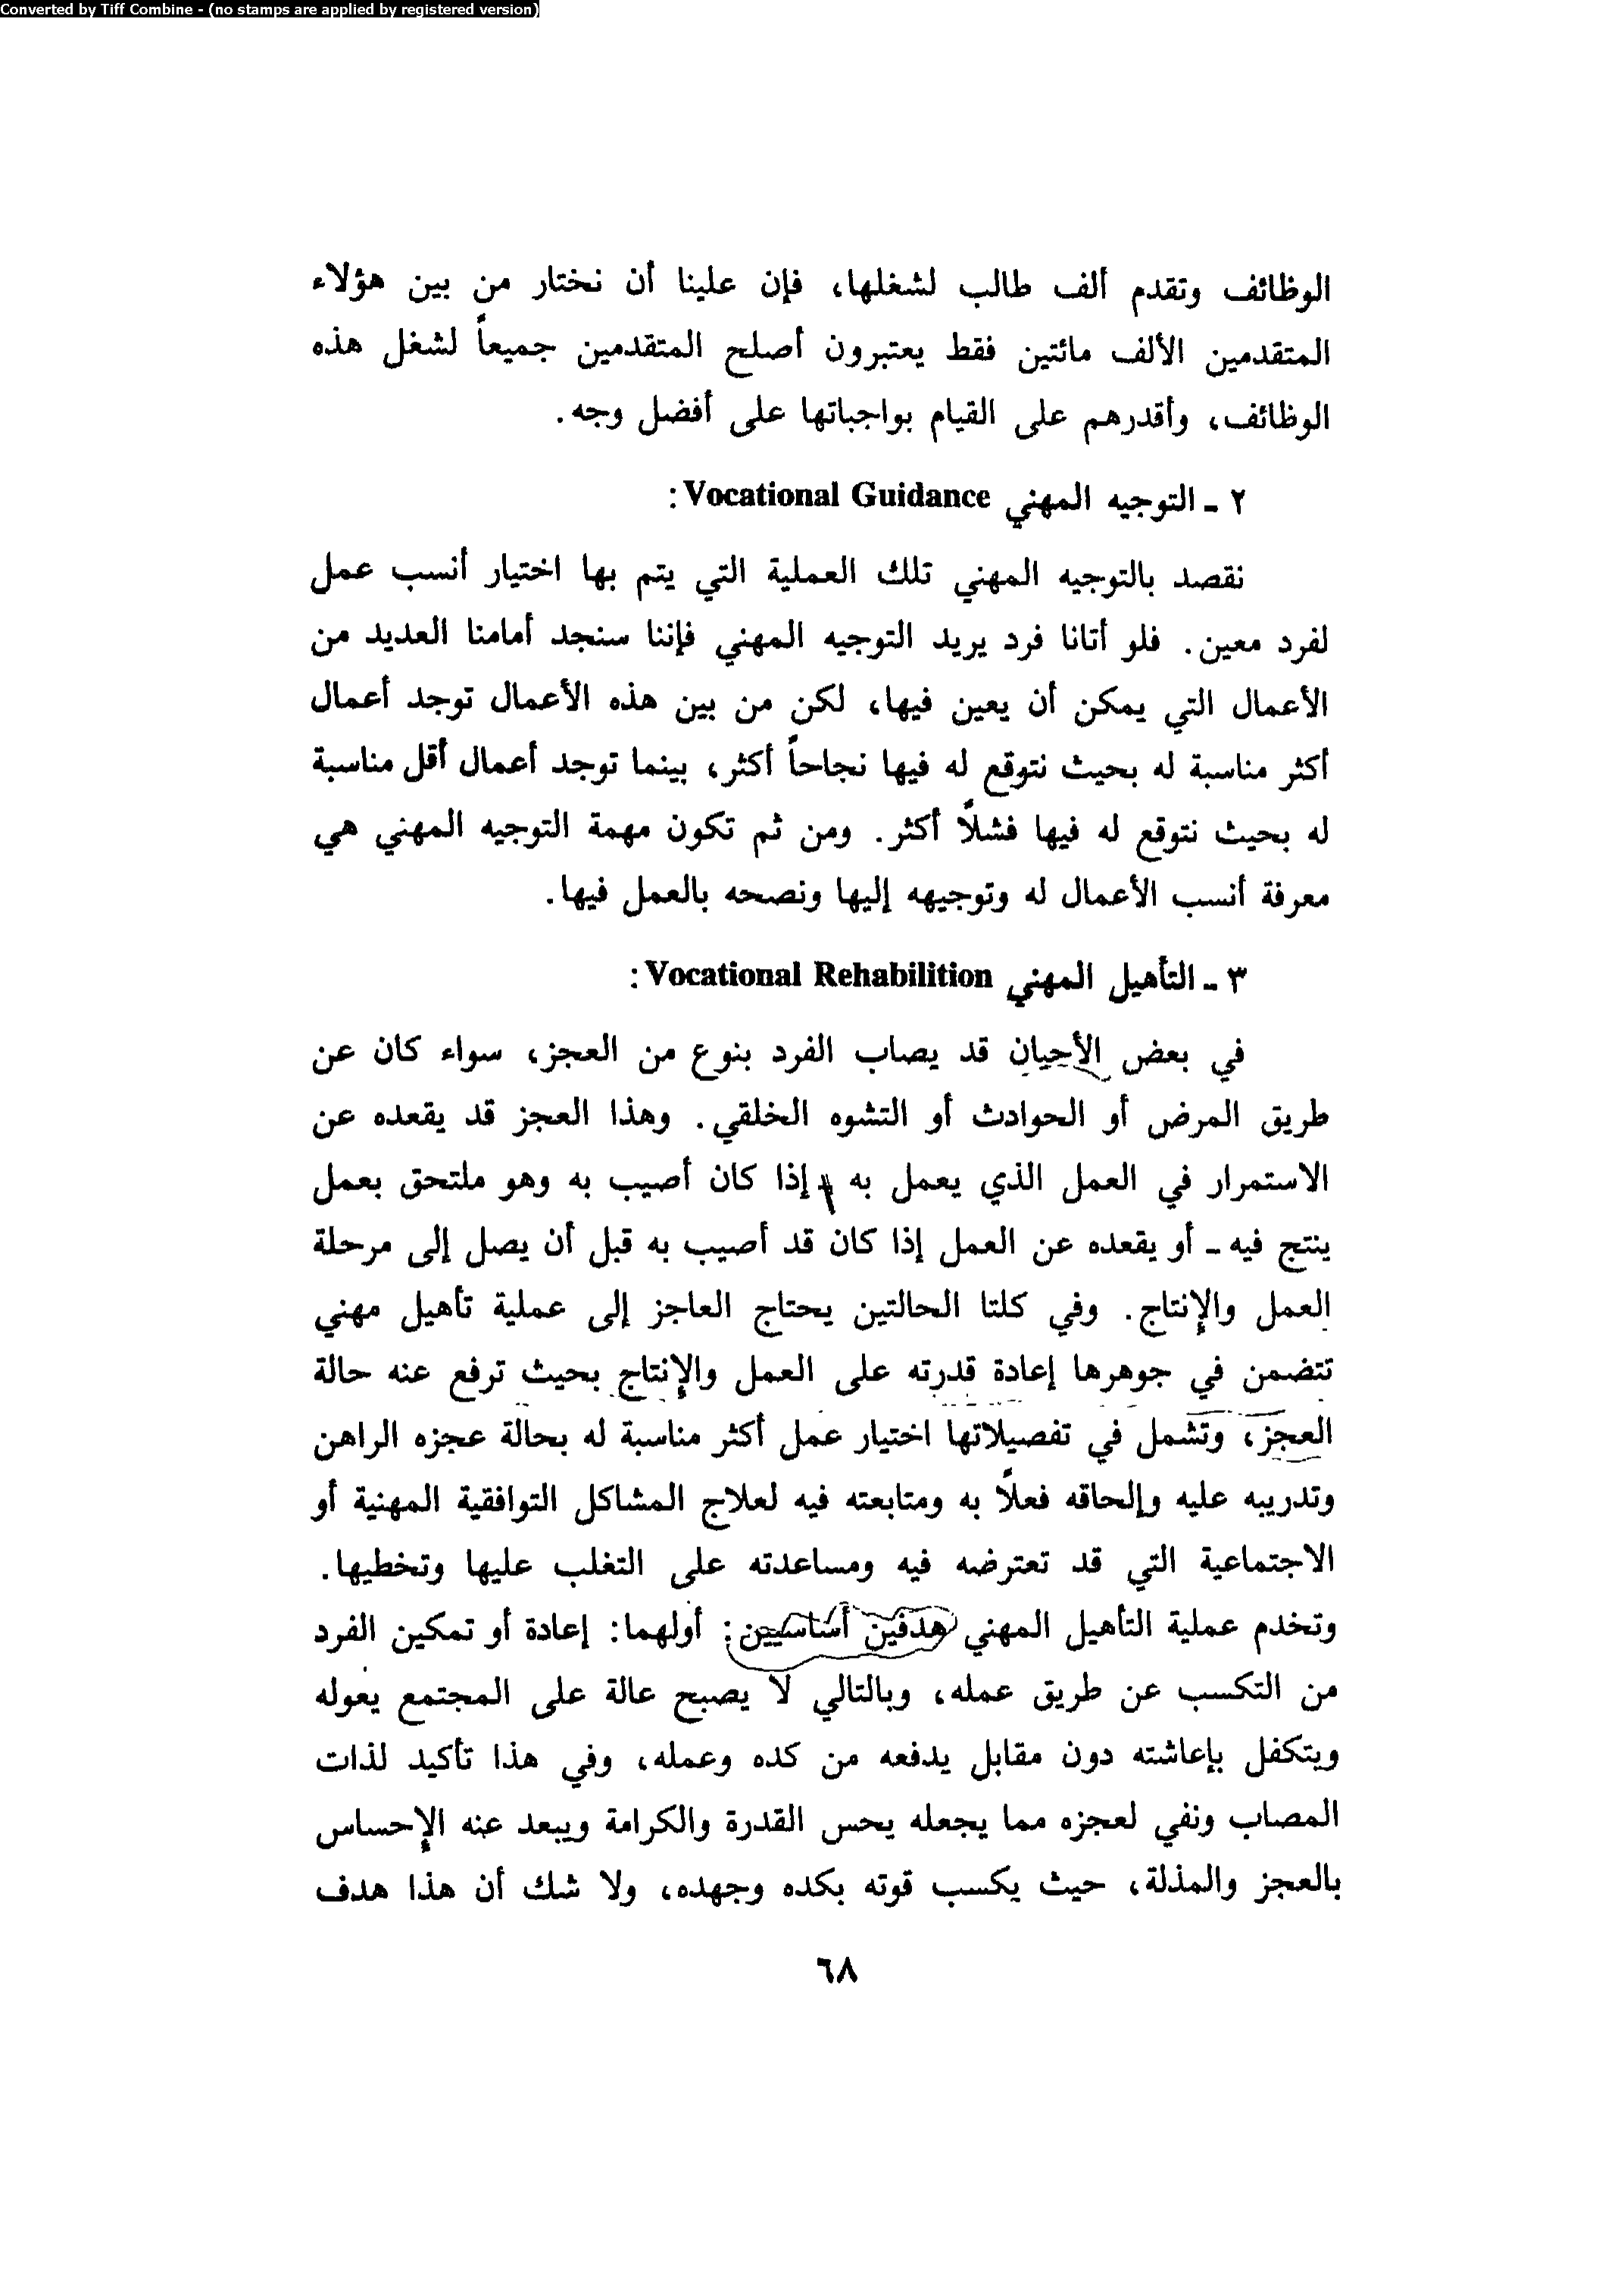 Converted by Tiff Combine - (no stamps are applied by registered version)
الوظائف وتقدم ألف طالب لشغلها، فإن علينا أن نختار من بين هؤلاء
المتقدمين الألف مائتين فقط يعتبرون أصلح المتقدمين جميعاً لشغل هذه
الوظائف، وأقدرهم على القيام بواجباتها على أفضل وجه.
٢ ـ التوجيه المهني Vocational Guidance:
نقصد بالتوجيه المهني تلك العملية التي يتم بها اختيار أنسب عمل
لفرد معين. فلو أتانا فرد يريد التوجيه المهني فإننا سنجد أمامنا العديد من
الأعمال التي يمكن أن يعين فيها، لكن من بين هذه الأعمال توجد أعمال
أكثر مناسبة له بحيث نتوقع له فيها نجاحاً أكثر، بينما توجد أعمال أقل مناسبة
له بحيث نتوقع له فيها فشلاً أكثر. ومن ثم تكون مهمة التوجيه المهني هي
معرفة أنسب الأعمال له وتوجيهه إليها ونصحه بالعمل فيها.
٣ ـ التأهيل المهني Vocational Rehabilition:
في بعض الأحيان قد يصاب الفرد بنوع من العجز، سواء كان عن
طريق المرض أو الحوادث أو التشوه الخلقي. وهذا العجز قد يقعده عن
الاستمرار في العمل الذي يعمل به ـ إذا كان أصيب به وهو ملتحق بعمل
ينتج فيه ـ أو يقعده عن العمل إذا كان قد أصيب به قبل أن يصل إلى مرحلة
العمل والإنتاج. وفي كلتا الحالتين يحتاج العاجز إلى عملية تأهيل مهني
تتضمن في جوهرها إعادة قدرته على العمل والإنتاج بحيث ترفع عنه حالة
العجز، وتشمل في تفصيلاتها اختيار عمل أكثر مناسبة له بحالة عجزه الراهن
وتدريبه عليه وإلحاقه فعلاً به ومتابعته فيه لعلاج المشاكل التوافقية المهنية أو
الاجتماعية التي قد تعترضه فيه ومساعدته على التغلب عليها وتخطيها.
وتخدم عملية التأهيل المهني هدفين أساسيين: أولهما: إعادة أو تمكين الفرد
من التكسب عن طريق عمله، وبالتالي لا يصبح عالة على المجتمع يعوله
ويتكفل بإعاشته دون مقابل يدفعه من كده وعمله، وفي هذا تأكيد لذات
المصاب ونفي لعجزه مما يجعله يحس القدرة والكرامة ويبعد عنه الإحساس
بالعجز والمذلة، حيث يكسب قوته بكده وجهده، ولا شك أن هذا هدف
٦٨